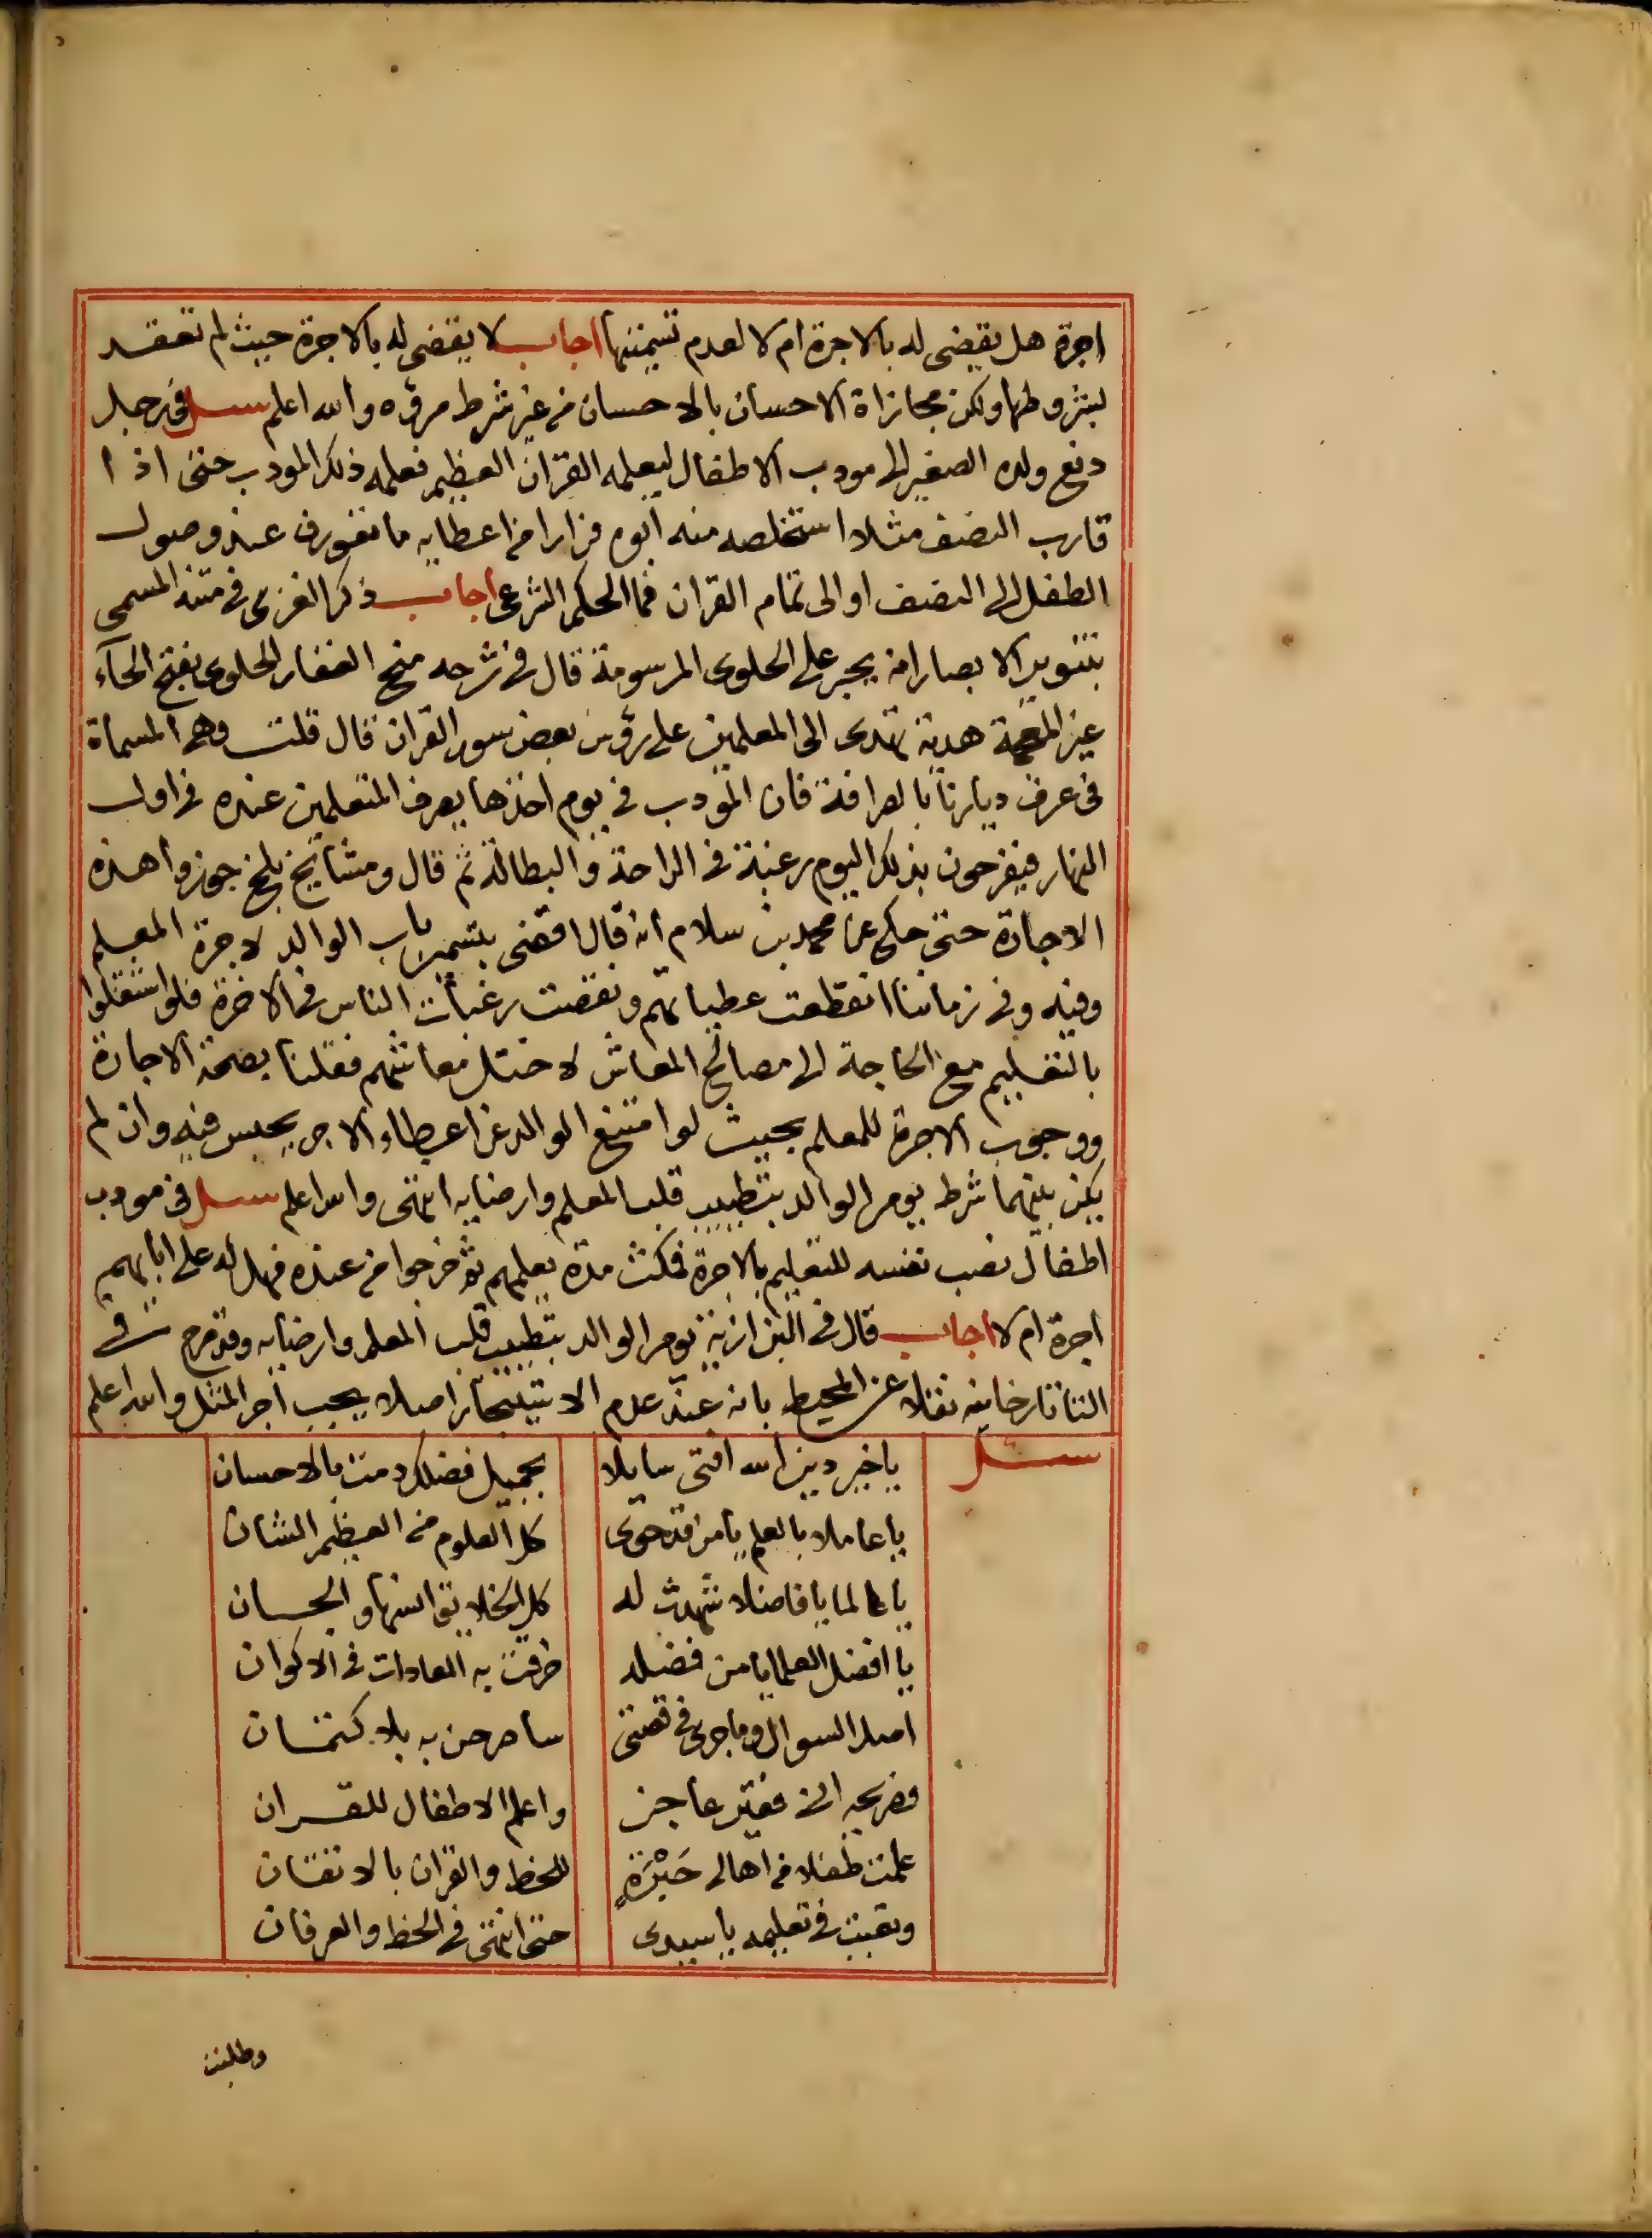 اجرة هل يقضى له بالاجرة ام لا لعدم تسميتها اجاب لا يقضى له بالاجرة حيث لم تعقد
بشروطها ولكن مجازاة الاحسان بالاحسان من غير شرط مروه والله اعلم سئل في رجل
دفع ولده الصغير الى مودب الاطفال ليعلمه القران العظيم فعلمه ذلك المودب حتى اذا
قارب النصف مثلا استخلصه منه ابوه فرارا من اعطايه ما تعورف عند وصول
الطفل الى النصف او الى تمام القران فما الحكم الشرعى اجاب ذكر الغزى في متنه المسمى
بتنوير الابصار انه يجبر على الحلوى المرسومة قال في شرحه منح الغفار الحلوى بفتح الحآء
غير المعجمة هدية تهدى الى المعلمين على رؤس بعض سور القران قال قلت وهى المسماة
فى عرف ديارنا بالصرافة فان المؤدب في يوم اخذها يصرف المتعلمين عنده في اول
النهار فيفرحون بذلك اليوم رغبة في الراحة والبطالة ثم قال ومشايخ بلخ جوزوا هذه
الاجارة حتى حكى عن محمد بن سلام انه قال اقضى بتسمير باب الوالد لاجرة المعلم
وفيه وفى زماننا انقطعت عطياتهم ونقصت رغبات الناس في الاخرة فلو اشتغلوا
بالتعليم مع الحاجة الى مصالح المعاش لاختل معاشهم فقلنا بصحة الاجارة
ووجوب الاجرة للمعلم بحيث لو امتنع الوالد عن اعطاء الاجر يحبس فيه وان لم
يكن بينهما شرط يومر الوالد بتطييب قلب المعلم وارضايه انتهى والله اعلم سئل في مودب
اطفال نصب نفسه للتعليم بالاجرة فمكث مدة يعلمهم ثم خرجوا من عنده فهل له على ابايهم
اجرة ام لا اجاب قال في البزازية يومر الوالد بتطييب قلب المعلم وارضايه وقد صرح في
التاتارخانيه نقلا عن المحيط بانه عند عدم الاستيجار اصلا يجب اجر المثل والله اعلم
سئل
يا خير دين الله افتى سايلا بجميل فضلك دمت بالاحسان
يا عاملا بالعلم يا من قد حوى كل العلوم من العظيم الشان
يا عالما يا فاضلا شهدت له كل الخلايق انسها والجان
يا افضل العلما يا من فضله خرقت به العادات في الاكوان
اصل السوال وما جرى في قصتى ساصرحن به بلا كتمان
فصريحه انى فقير عاجز واعلم الاطفال للقران
علمت طفلا من اهالى حَبْرَةٍ للخط والقران بالاتقان
وتعبت في تعليمه يا سيدى حتى انتهى في الخط والعرفان
وطلبت